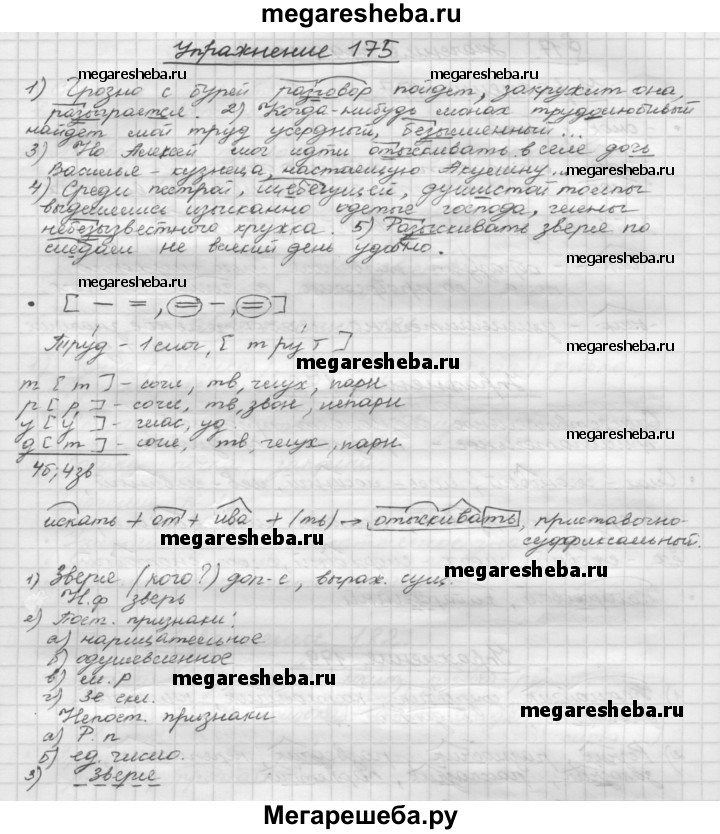 megaresheba.ru
Упражнение 175
megaresheba.ru megaresheba.ru
1) Грозно с бурей разговор пойдет, закружит она,
разыграется. 2) Когда-нибудь монах трудолюбивый
найдет мой труд усердный, безымянный...
3) Но Алексей мог идти отыскивать в селе дочь
Василья-кузнеца, настоящую Акулину...
megaresheba.ru megaresheba.ru
4) Среди пестрой, щебетущей, душистой толпы
выделялись изысканно одетые господа, члены
небезызвестного кружка. 5) Разыскивать зверя по
следам не всякий день удобно.
megaresheba.ru
• [ — =, = —, = ]
megaresheba.ru
Труд - 1 слог, [ т р у́ т ]
megaresheba.ru
т [ т ] - согл, тв, глух, парн
р [ р ] - согл, тв, звон, непарн
у [ у́ ] - глас, уд.
megaresheba.ru
д [ т ] - согл, тв, глух, парн
4б; 4зв
искать + от + ива + (ть) → отыскивать, приставочно-
суффиксальный.
megaresheba.ru megaresheba.ru
1) Зверя (кого?) доп-е, выраж. сущ.
Н.ф зверь
2) Пост. признаки:
а) нарицательное
б) одушевленное
в) м. р
megaresheba.ru
г) 3е скл.
Непост. признаки
megaresheba.ru
а) Р. п
б) ед. число.
3) Зверя
Мегарешеба.ру